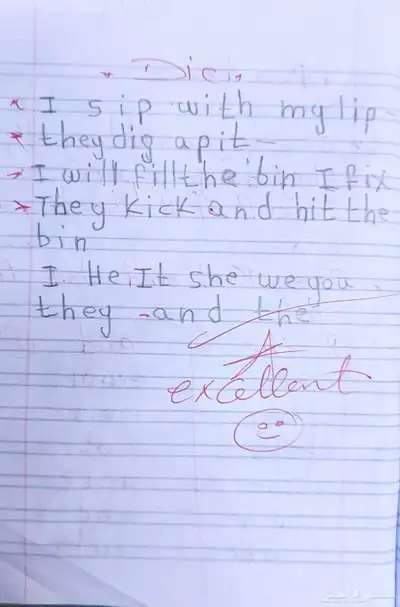 Dic.
I sip with my lip
they dig a pit
I will fill the bin I fix
They kick and hit the
bin
I. He. It she we you.
they - and the
A
excellent